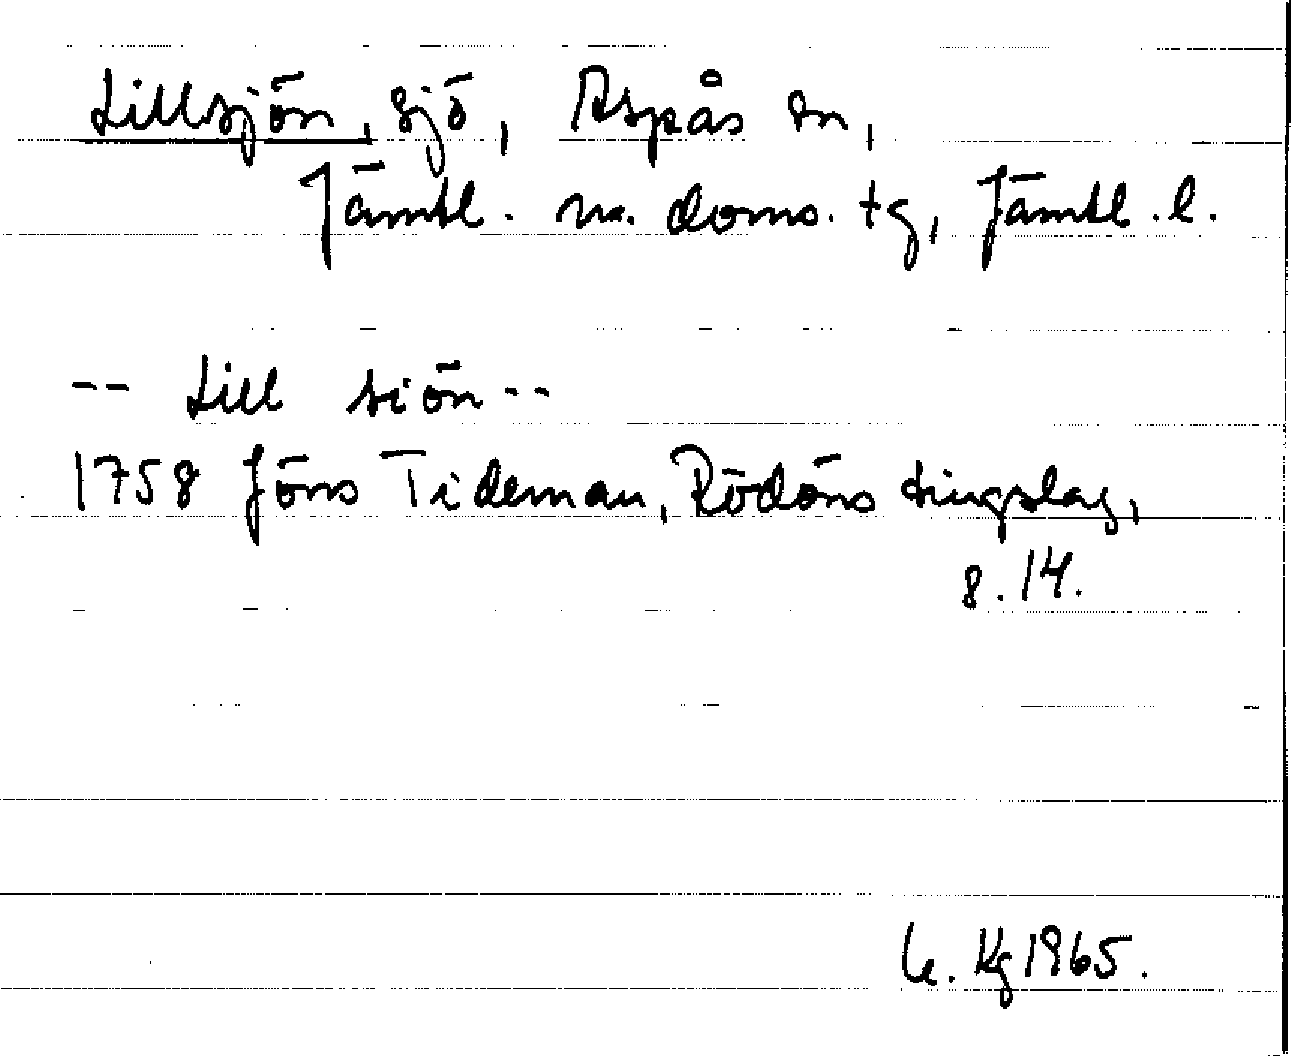 Lillsjön, sjö, Aspås sn,
Jämtl. n. doms. tg, Jämtl. l.
-- Lill siön --
1758 Jöns Tideman, Rödöns tingslag,
8. 14.
Kg 1965.